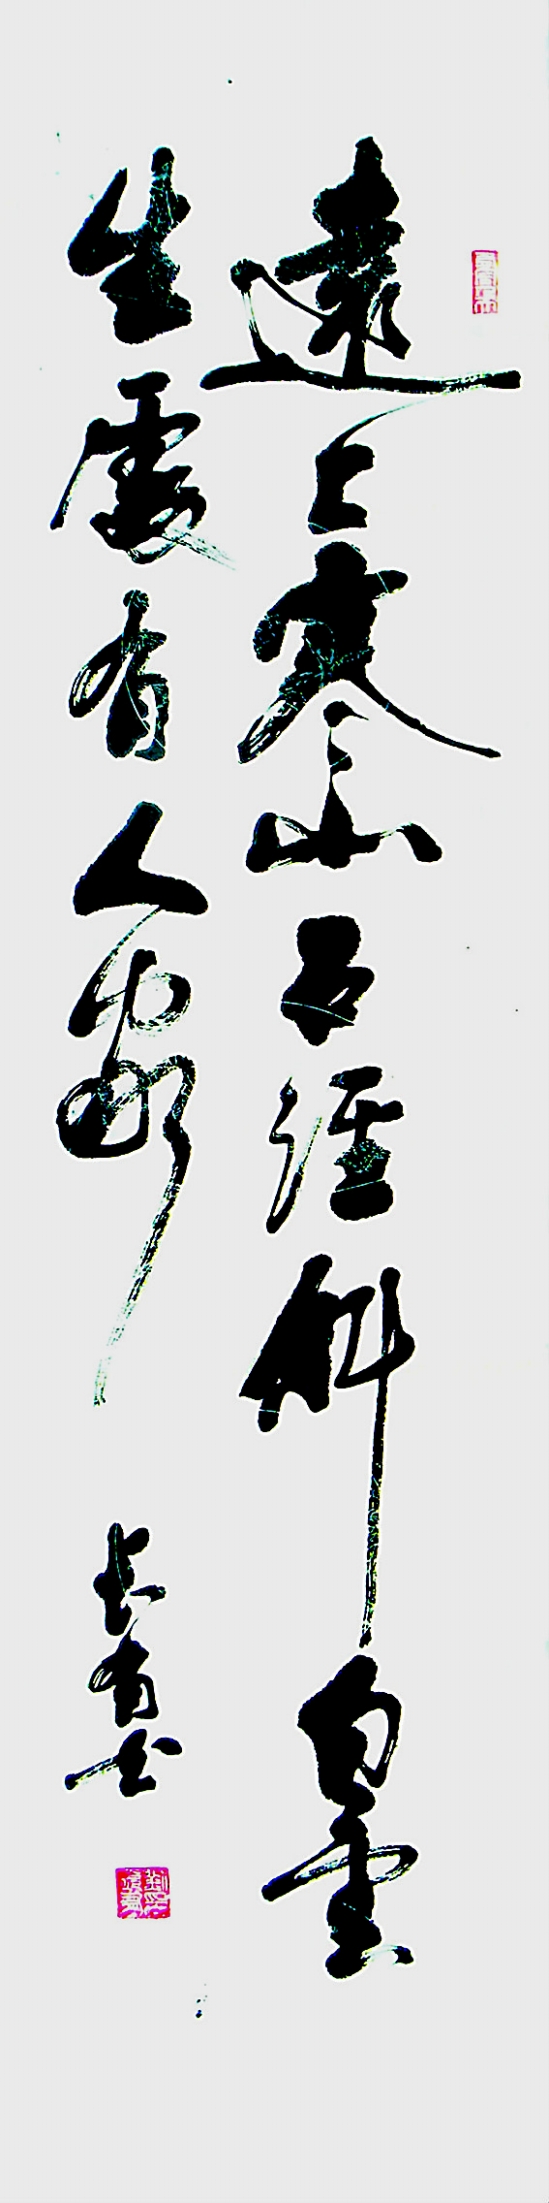 遠上寒山石徑斜白雲
生處有人家
長有书